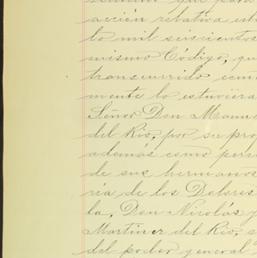 acción relativa
to mil seiscientos
mismo Código, que
transcurrido
mente lo estuviera
Señor Don Manu
del Río, por su pro
además como per
de sus hermanos
ría de los Dolores
la, Don Nicolás y
Martínez del Río, s
del poder general